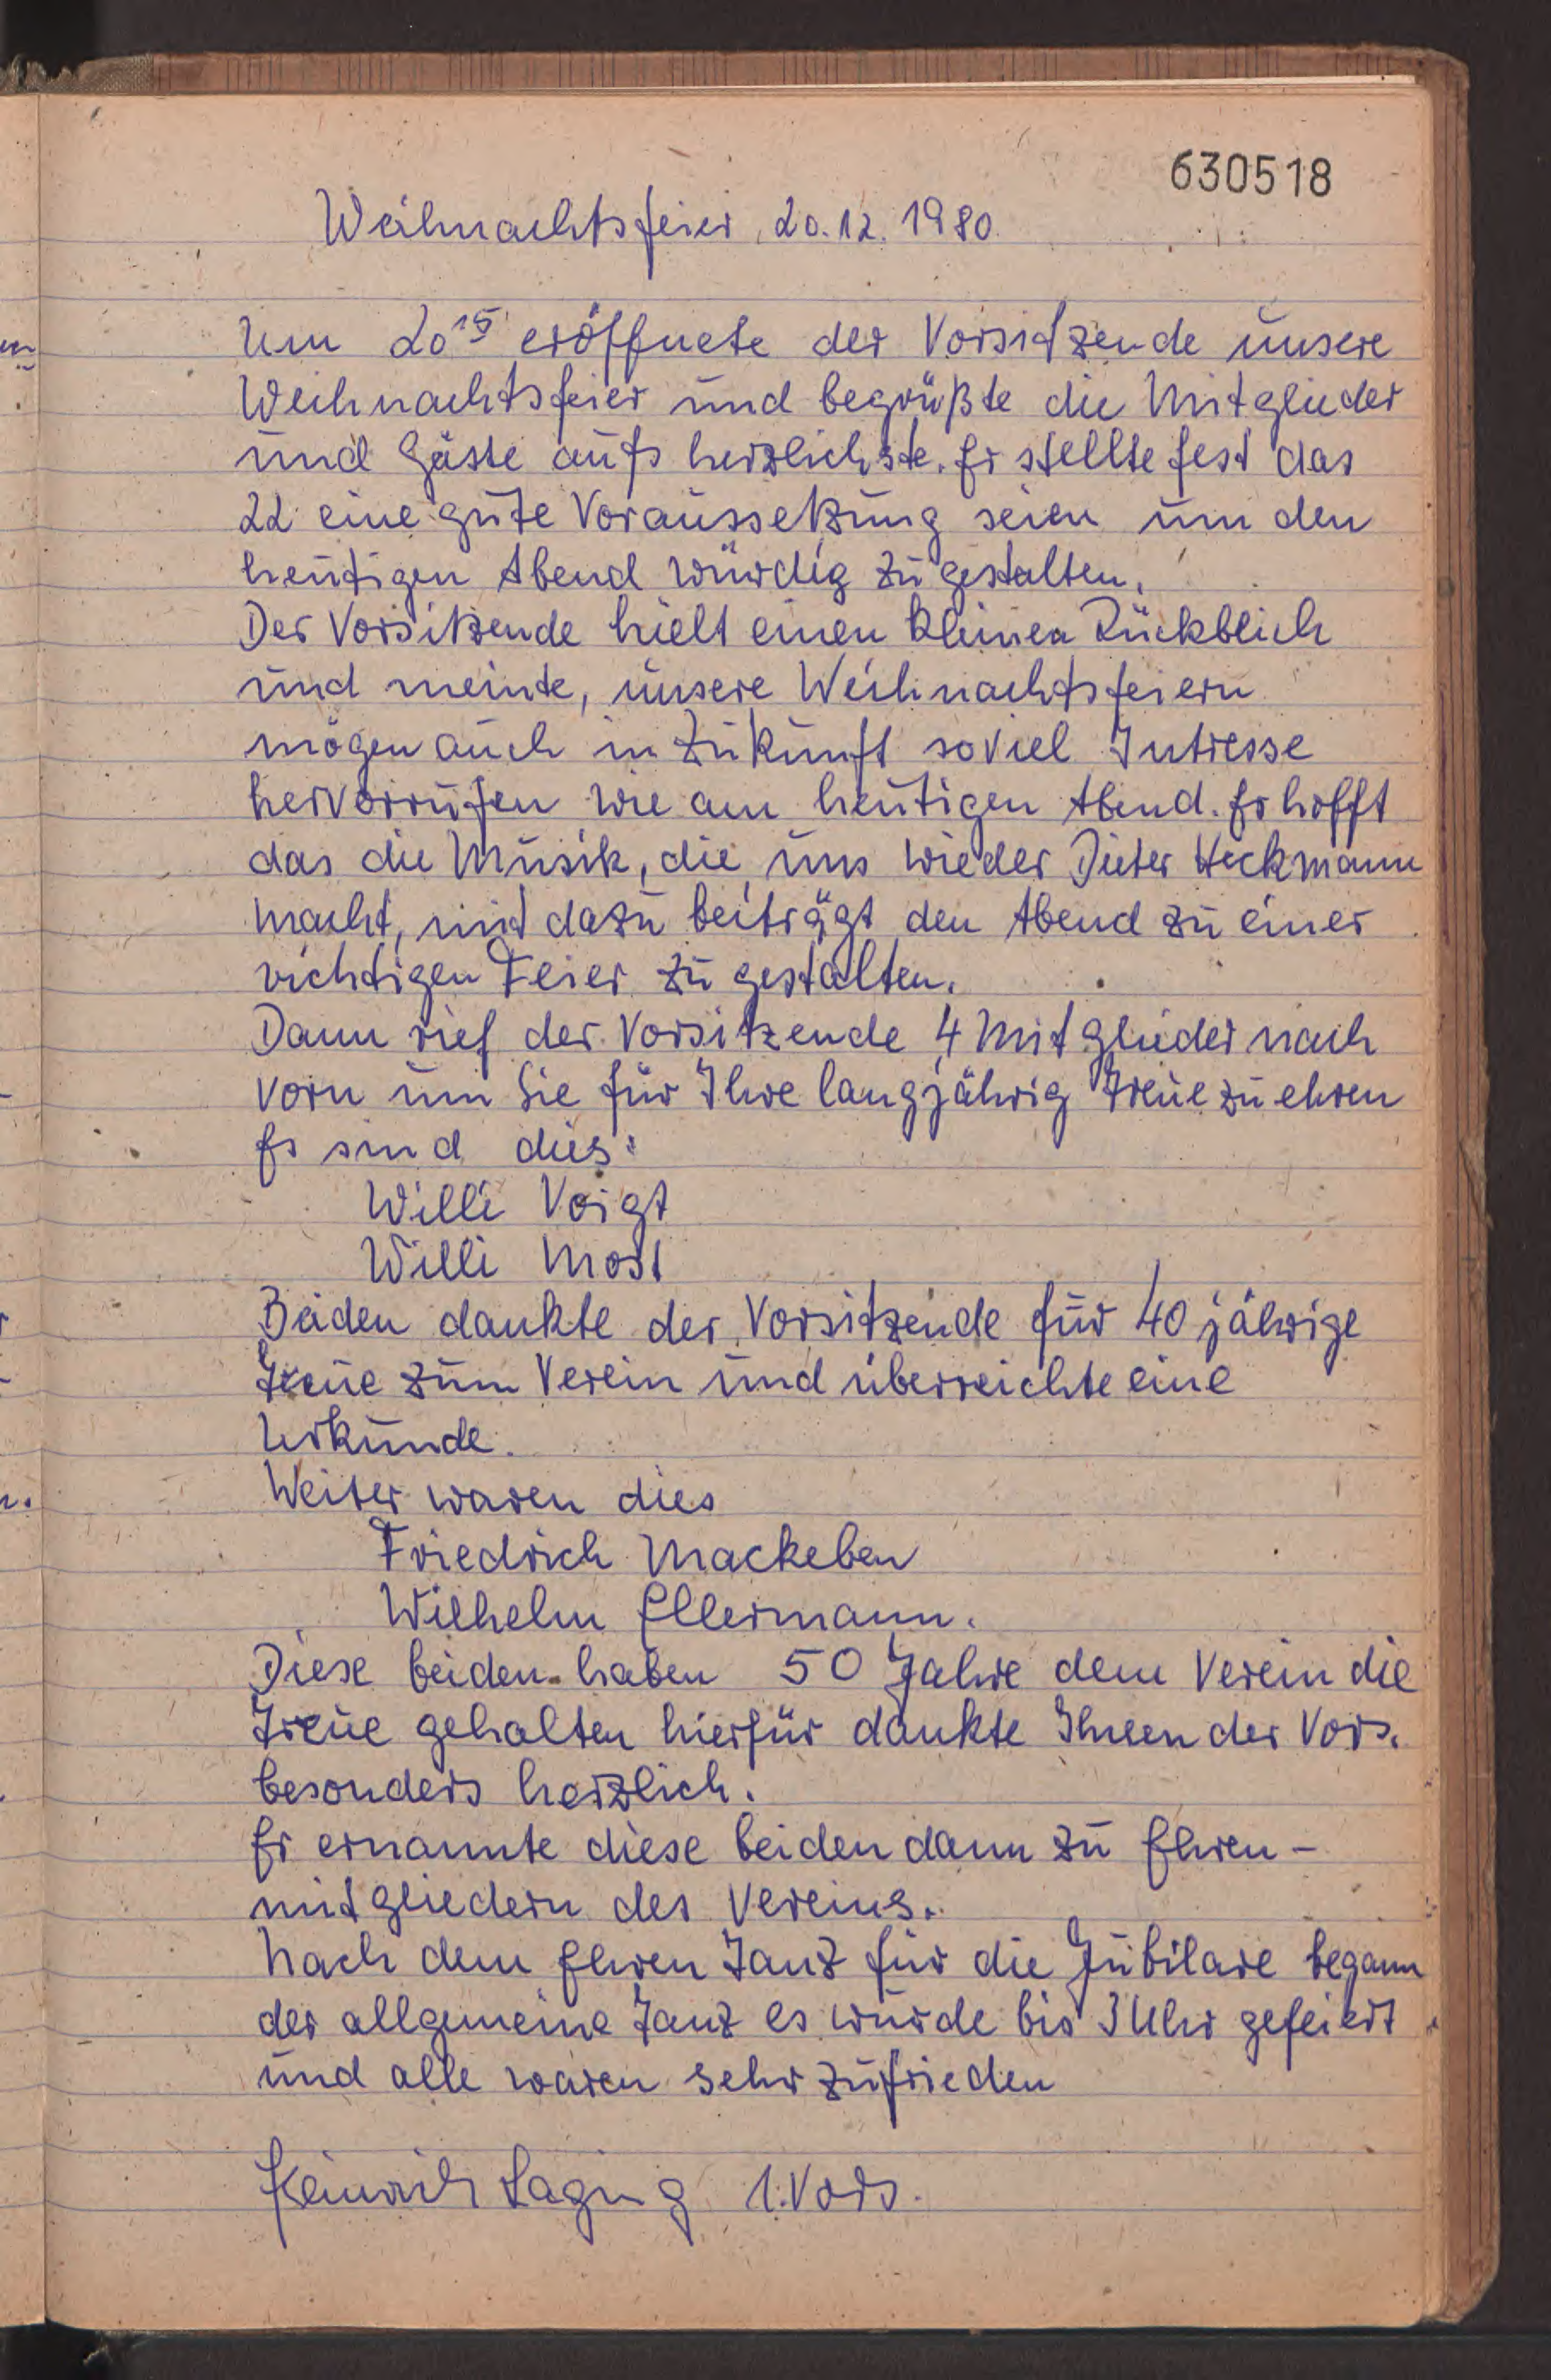 630518
Weihnachtsfeier, 20.12.1980.
Um 20¹⁵ eröffnete der Vorsitzende unsere
Weihnachtsfeier und begrüßte die Mitglieder
und Gäste aufs herzlichste. Er stellte fest das
22 eine gute Voraussetzung seien um den
heutigen Abend würdig zu gestalten.
Der Vorsitzende hielt einen kleinen Rückblick
und meinte, unsere Weihnachtsfeiern
mögen auch in Zukunft soviel Intresse
hervorrufen wie am heutigen Abend. Er hofft
das die Musik, die uns wieder Dieter Heckmann
macht, mit dazu beiträgt den Abend zu einer
richtigen Feier zu gestalten.
Dann rief der Vorsitzende 4 Mitglieder nach
vorn um Sie für Ihre langjährig Treue zu ehren
Es sind dies:
Willi Voigt
Willi Most
Beiden dankte der Vorsitzende für 40 jährige
Treue zum Verein und überreichte eine
Urkunde.
Weiter waren dies
Friedrich Mackeben
Wilhelm Ellermann.
Diese beiden haben 50 Jahre dem Verein die
Treue gehalten hierfür dankte Ihnen der Vors.
besonders herzlich.
Er ernannte diese beiden dann zu Ehren-
mitgliedern des Vereins.
Nach dem Ehren Tanz für die Jubilare begann
der allgemeine Tanz es wurde bis 3 Uhr gefeiert
und alle waren sehr zufrieden
Heinrich Laging 1. Vors.